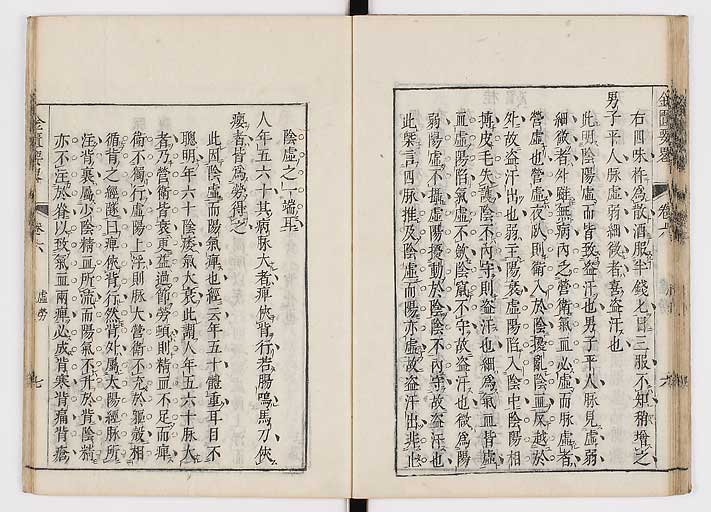 右四味杵為散酒服半錢七日三服不知稍增之
男子平人脉虛弱細微者喜盗汗也
此明陰陽虛而皆致盗汗也男子平人脉見虛弱
細微者外雖無病內之營衛氣血必虛而脉虛者
營虛也營虛夜臥則衛入於陰擾亂陰血反越於
外故盗汗出也弱主陽衰虛陽陷入陰中陰陽相
摶皮毛失護陰不內守則盗汗也細為氣血皆虛
血虛陽陷氣虛不歛陰竅不守故盗汗也微為陽
弱陽虛不攝虛陽擾動於陰陰不內守故盗汗也
此槩言四脉推及陰虛而陽亦虛故盗汗出非止
陰虛之一端耳
人年五六十其病脉大者痺俠背行若腸鳴馬刀俠
癭者皆為勞得之
此因陰虛而陽氣痺也經云年五十體重耳目不
聰明年六十陰痿氣大衰此謂人年五六十脉大
者乃營衛皆衰更兼過節勞頓則精血不足而痺
衛不獨行虛陽上浮則脉大營衛不充於軀殼相
循背之經隧曰痺俠背行然背外屬太陽經脉所
注背裏屬少陰精血所流而陽氣不升於背陰精
亦不注於脊以致氣血兩痺必成背寒背痛背瘡
金匱要畧 卷六 虛勞 七